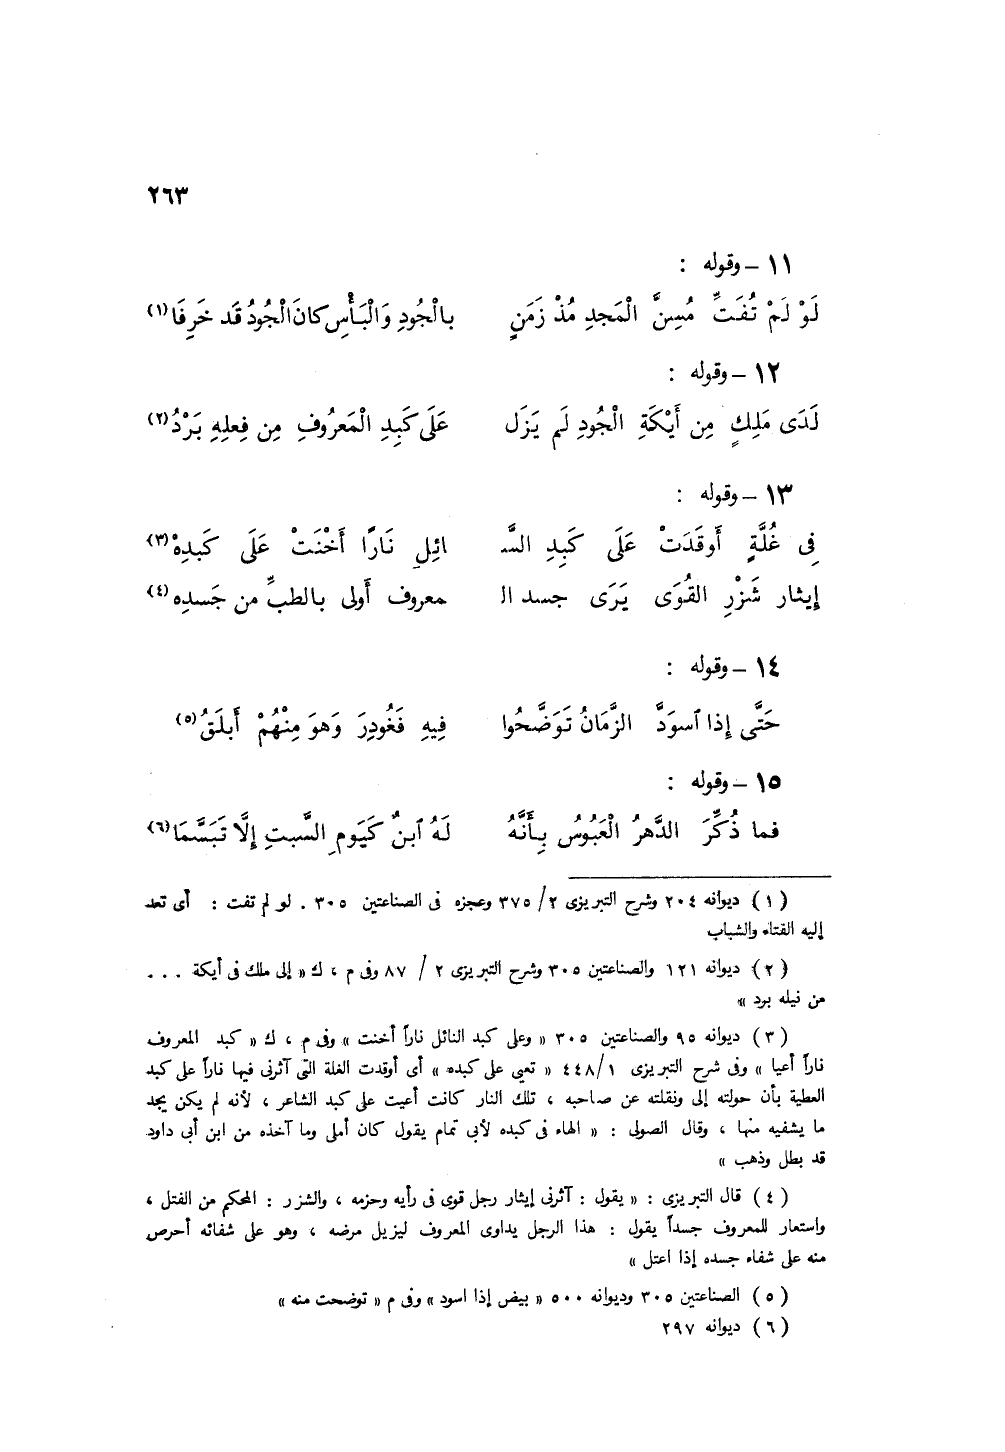 ٢٦٣
١١ – وقوله :
لَوْ لَمْ تُفَتِّ مُسِنَّ الْمَجدِ مُذْ زَمَنٍ بالْجُودِ وَالْبَأْسِ كانَ الْجُودُ قَد خَرِفَا(١)
١٢ – وقوله :
لَدَى مَلِكٍ مِن أَيْكَةِ الْجُودِ لَم يَزَل عَلَى كَبِدِ الْمَعرُوفِ مِن فِعلِهِ بَرْدُ(٢)
١٣ – وقوله :
فِى غُلَّةٍ أَوقَدَتْ عَلَى كَبِدِ السَّ ائِلِ نَارًا أَخْنَتْ عَلَى كَبدِهْ(٣)
إِيثار شَزْرِ القُوَى يَرَى جسد الـ معروف أَولى بالطبِّ من جَسدِه(٤)
١٤ – وقوله :
حَتَّى إِذا ٱسوَدَّ الزَّمَانُ تَوَضَّحُوا فِيهِ فَغُودِرَ وَهوَ مِنْهُمْ أَبلَقُ(٥)
١٥ – وقوله :
فما ذُكِّرَ الدَّهرُ الْعَبُوسُ بِأَنَّهُ لَهُ ٱبنٌ كَيَومِ السَّبتِ إِلَّا تَبَسَّمَا(٦)
(١) ديوانه ٢٠٤ وشرح التبريزى ٢/ ٣٧٥ وعجزه فى الصناعتين ٣٠٥ . لو لم تفت : أى تعد
إليه الفتاء والشباب
(٢) ديوانه ١٢١ والصناعتين ٣٠٥ وشرح التبريزى ٢ / ٨٧ وفى م ، ك « إلى ملك فى أيكة ...
من نيله برد »
(٣) ديوانه ٩٥ والصناعتين ٣٠٥ « وعلى كبد النائل ناراً أخنت » وفى م ، ك « كبد المعروف
ناراً أعيا » وفى شرح التبريزى ١/ ٤٤٨ « تعيى على كبده » أى أوقدت الغلة التى آثرنى فيها ناراً على كبد
العطية بأن حولته إلى ونقلته عن صاحبه ، تلك النار كانت أعيت على كبد الشاعر ، لأنه لم يكن يجد
ما يشفيه منها ، وقال الصولى : « الهاء فى كبده لأبى تمام يقول كان أملى وما آخذه من ابن أبى داود
قد بطل وذهب »
(٤) قال التبريزى : « يقول : آثرنى إيثار رجل قوى فى رأيه وحزمه ، والشزر : المحكم من الفتل ،
واستعار للمعروف جسداً يقول : هذا الرجل يداوى المعروف ليزيل مرضه ، وهو على شفائه أحرص
منه على شفاء جسده إذا اعتل »
(٥) الصناعتين ٣٠٥ وديوانه ٥٠٠ « بيض إذا اسود » وفى م « توضحت منه »
(٦) ديوانه ٢٩٧